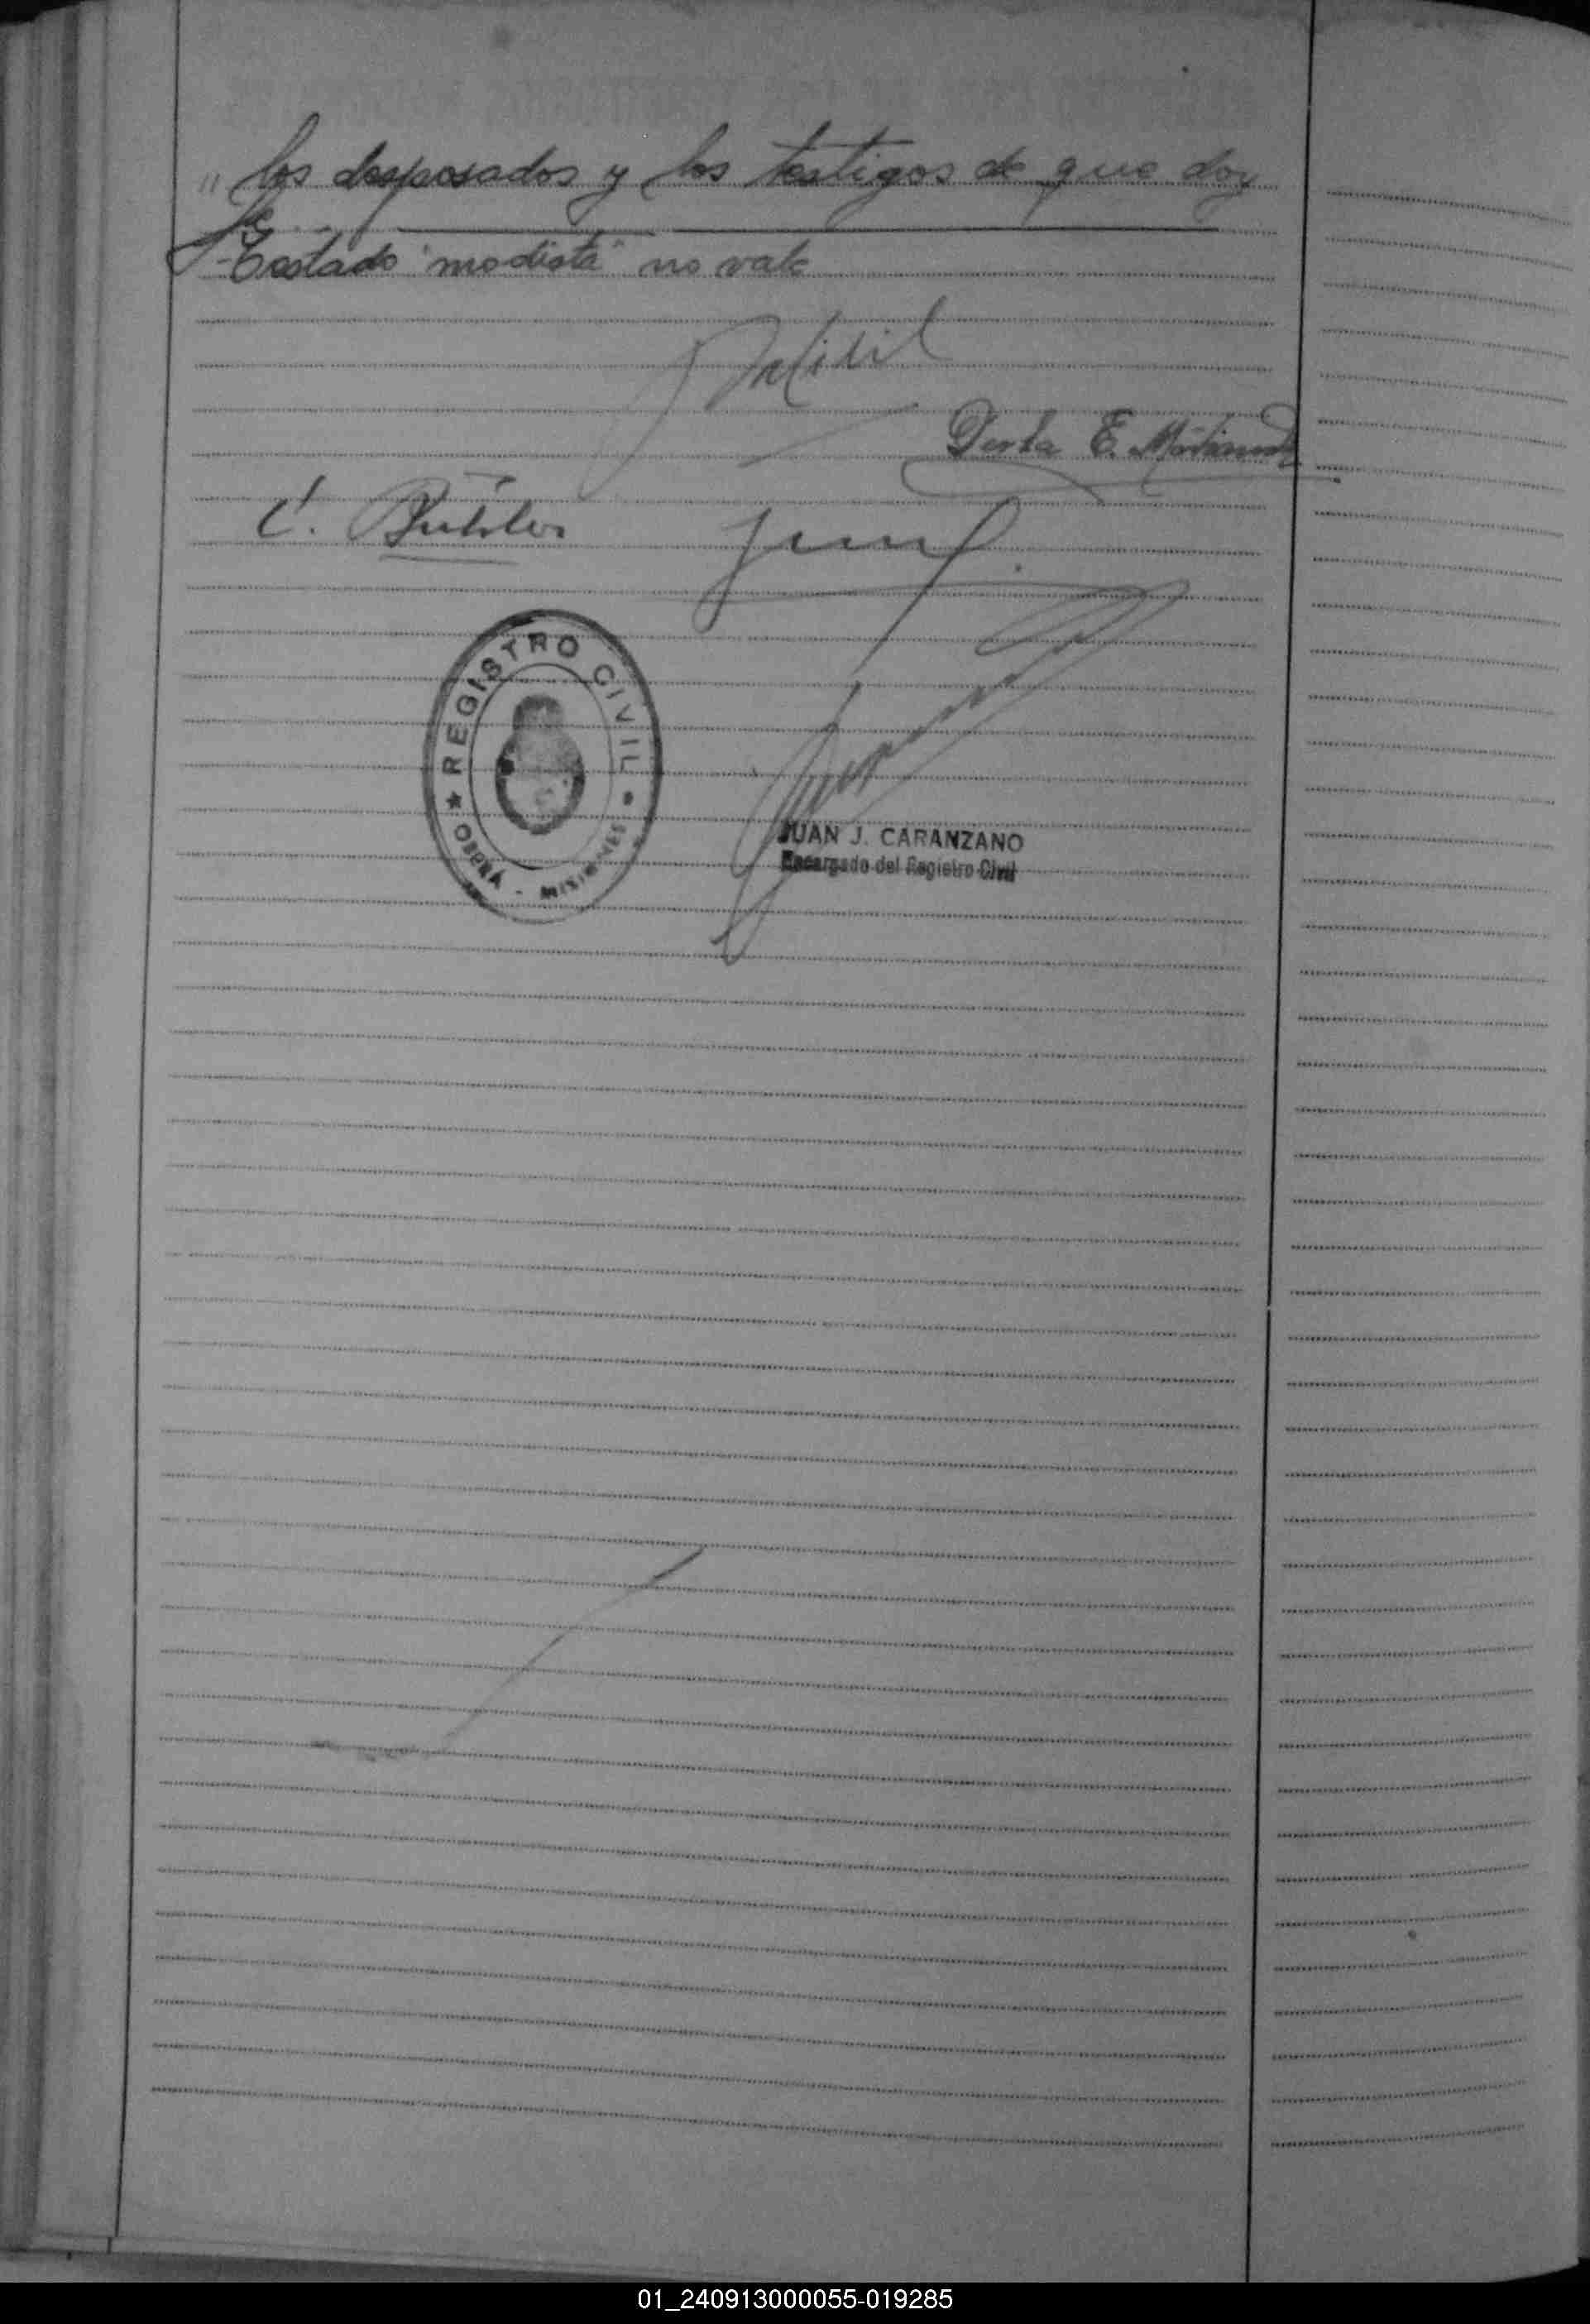 " los desposados y los testigos de que doy
fe
-Testado "modista" no vale
Berta E.
C. Bühler
REGISTRO CIVIL
OBERA - MISIONES
JUAN J. CARANZANO
Encargado del Registro Civil
01_240913000055-019285